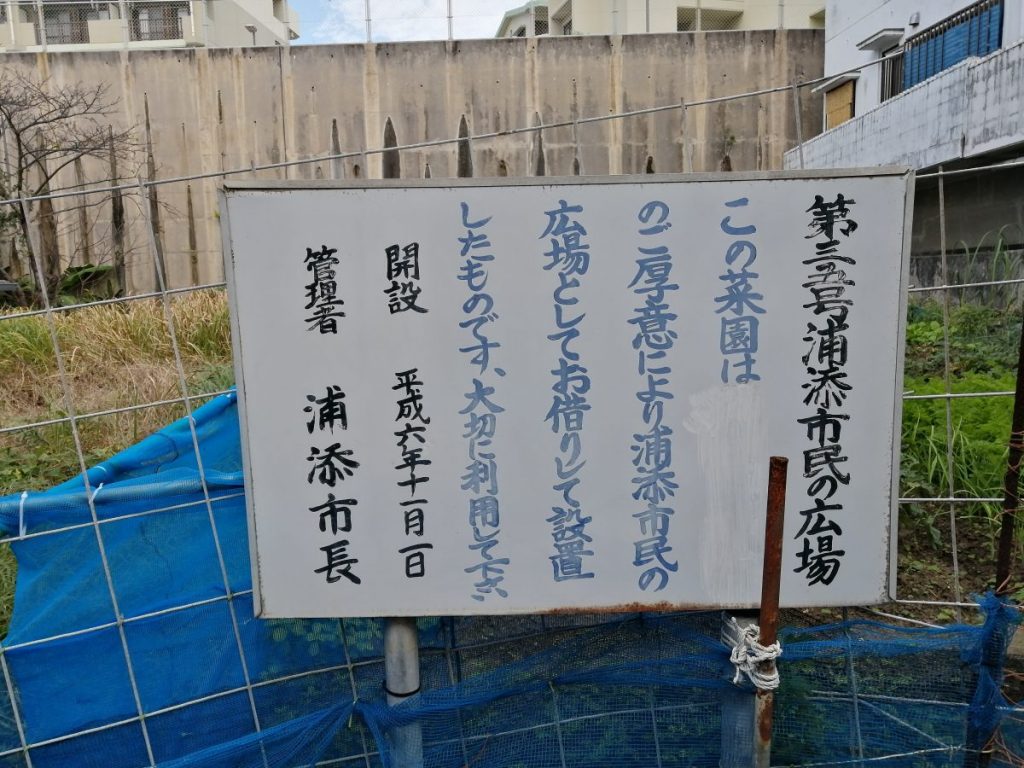 第三五号浦添市民の広場
この菜園は
のご厚意により浦添市民の
広場としてお借りして設置
したものです、大切に利用して下さい
開設 平成六年十一月一日
管理者 浦添市長